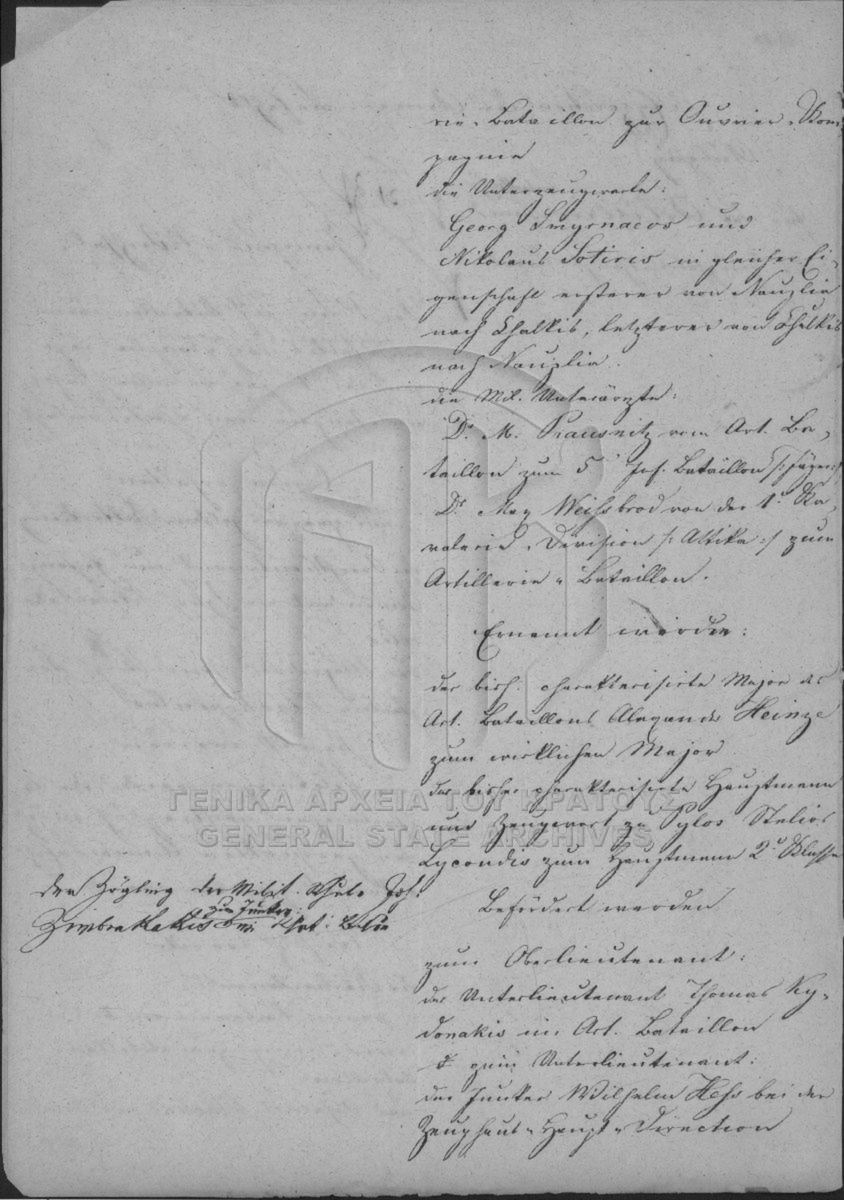 rie-Bataillon zur Ouvrier-Kom-
pagnie
die Unterzeugwarte:
Georg Smyrnaeos und
Nikolaus Sotiris in gleicher Ei-
genschaft ersterer von Nauplia
nach Chalkis, letzterer von Chalkis
nach Nauplia.
die Mil. Unterärzte:
Dr. M. Prausnitz vom Art. Ba-
taillon zum 5. Inf. Bataillon /: Jäger :/
Dr. Max Weissbrod von der 1. Ka-
valerie-Division /: Attika :/ zum
Artillerie-Bataillon.
Ernannt werden:
der bish. charakterisirte Major des
Art. Bataillons Alexander Heinze
zum wirklichen Major
der bisher charakterisirte Hauptmann
und Zeugwart zu Pylos Stelios
Lycoudis zum Hauptmann 2r Klasse
den Zögling der Milit. Schule Joh.
zum Junker
Zimbrakakis im Art: Batln
Befördert werden
zum Oberlieutenant:
der Unterlieutenant Thomas Ky-
donakis im Art. Bataillon
zum Unterlieutenant:
der Junker Wilhelm Hess bei der
Zeughaus-Haupt-Direction
ΓΕΝΙΚΑ ΑΡΧΕΙΑ ΤΟΥ ΚΡΑΤΟΥΣ
GENERAL STATE ARCHIVES